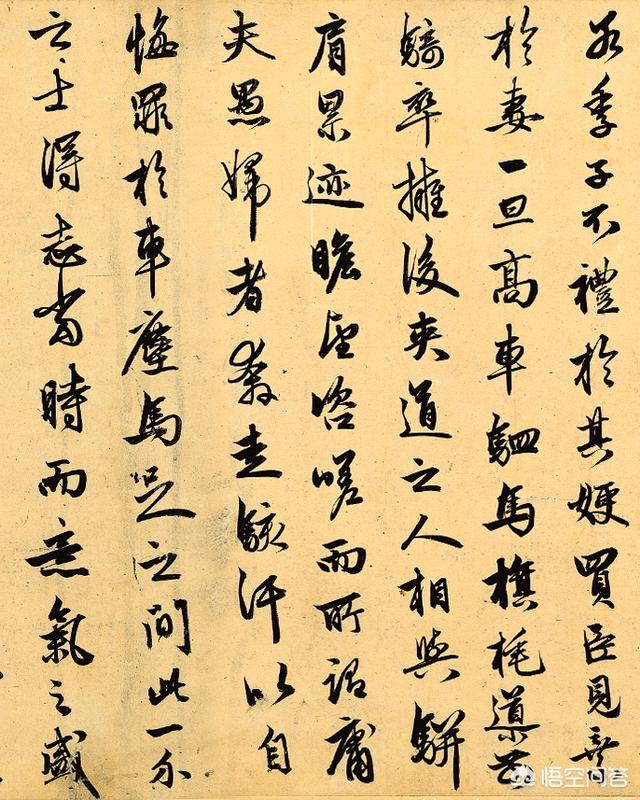 若季子不禮於其嫂買臣見棄
於妻一旦高車駟馬旗旄導前
騎卒擁後夾道之人相與駢
肩累迹瞻望咨嗟而所謂庸
夫愚婦者奔走駭汗以自
悔罪於車塵馬足之間此一介
之士得志當時而意氣之盛
悟空问答